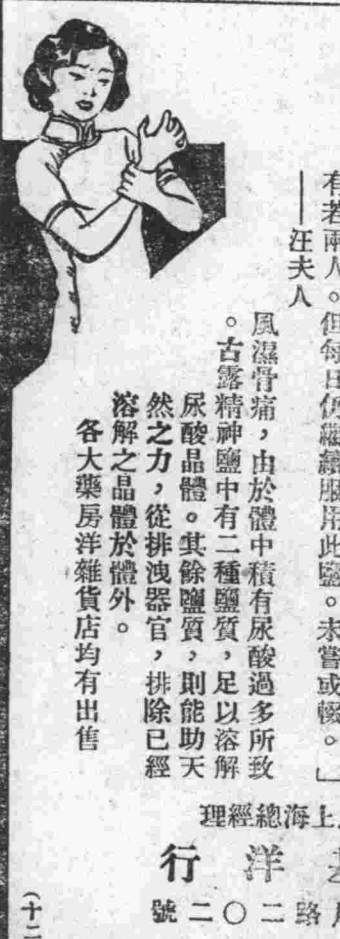 有若兩人。但每日仍繼續服用此鹽。未嘗或輟。」
——汪夫人
風濕骨痛,由於體中積有尿酸過多所致
。古露精神鹽中有二種鹽質,足以溶解
尿酸晶體。其餘鹽質,則能助天
然之力,從排洩器官,排除已經
溶解之晶體於體外。
各大藥房洋雜貨店均有出售
上海總經理
洋行
路二〇二號
(十二